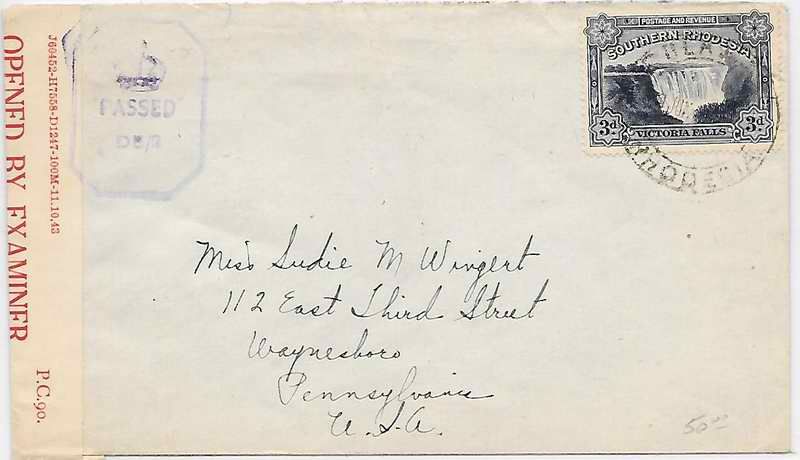 OPENED BY EXAMINER P.C.90.
J60452-H7558-D1247-100M-11.10.43
PASSED
POSTAGE AND REVENUE
SOUTHERN RHODESIA
3d VICTORIA FALLS 3d
RHODESIA
Miss Sudie M Wingert
112 East Third Street
Waynesboro
Pennsylvania
U.S.A.
50.00